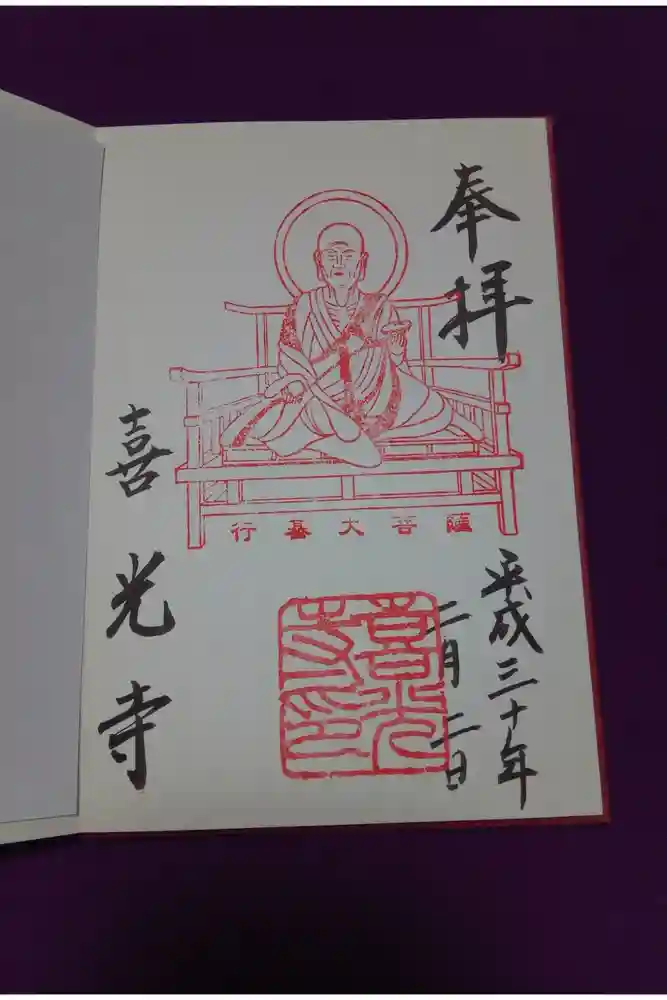 奉拝
平成三十年
二月二日
行基大菩薩
喜光寺
喜光寺印